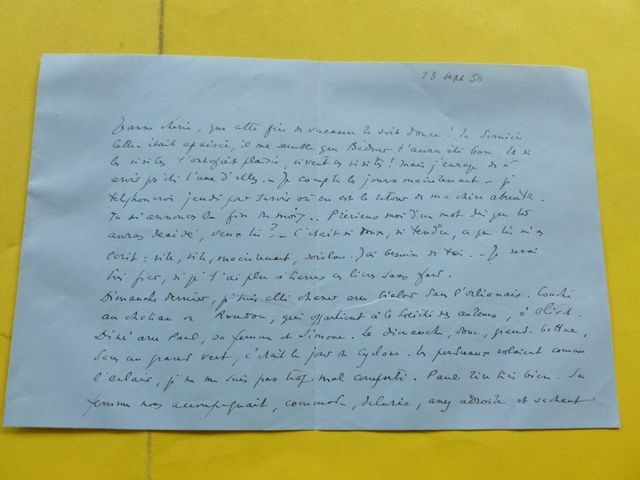 23 sept 50
Jeanne chérie, que cette fin de vacances te soit douce ! Ta dernière
lettre était apaisée, il me semble que t'aura été bon. Et si
les visites t'ont fait plaisir, vivent les visites ! Mais j'enrage de n'
avoir pas été l'une d'elles. - Je compte les jours maintenant - je
téléphonerai jeudi pour savoir où en est le retour de ma chère absente.
Tu m'annonces la fin du mois.. Préviens moi d'un mot dès que tu
auras décidé, veux tu ? - C'était si doux, si tendre, ce que tu m'as
écrit : vite, vite, maintenant, J'ai besoin de toi. - Je serai
très fier, si je t'ai plu à travers ce livre sans fard.
Dimanche dernier, je suis allé chasser avec dans l'orléanais. Couché
au château de qui appartient à la Société des auteurs, à
Dîné avec Paul, sa femme et Simone. Le dimanche, donc, grande battue,
sous un grand vent, c'était le jour du cyclone. Les perdreaux volaient comme
l'éclair, je ne me suis pas trop mal comporté. Paul tire très bien. Sa
femme nous accompagnait, délurée, assez adroite et sachant